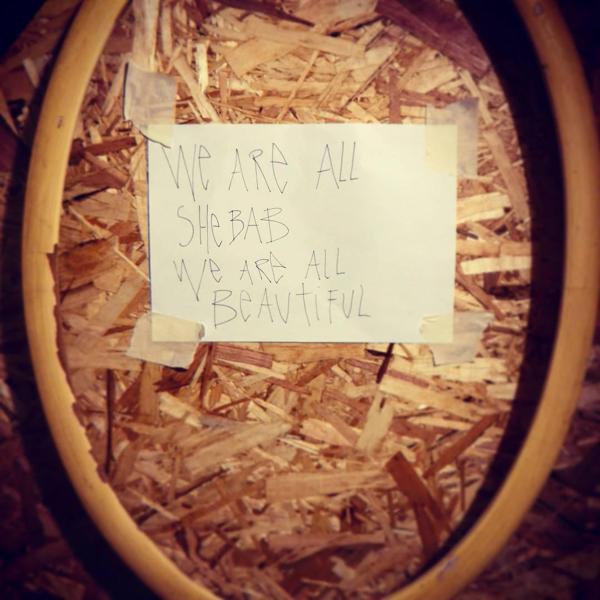 WE ARE ALL
SHEBAB
WE ARE ALL
BEAUTIFUL